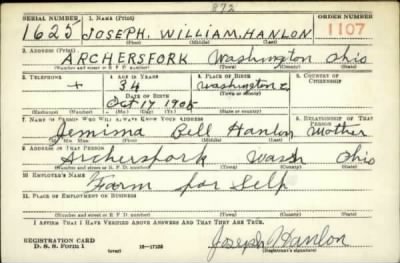 872
SERIAL NUMBER 1. NAME (Print) ORDER NUMBER
1625 JOSEPH. WILLIAM. HANLON 1107
(First) (Middle) (Last)
2. ADDRESS (Print)
ARCHERSFORK Washington Ohio
(Number and street or R. F. D. number) (Town) (County) (State)
3. TELEPHONE 4. AGE IN YEARS 5. PLACE OF BIRTH 6. COUNTRY OF CITIZENSHIP
+ 34 Washington
DATE OF BIRTH (Town or county)
Oct 17 1905
(Exchange) (Number) (Mo.) (Day) (Yr.) (State or country)
7. NAME OF PERSON WHO WILL ALWAYS KNOW YOUR ADDRESS 8. RELATIONSHIP OF THAT PERSON
Jemima Bell Hanlon Mother
(Mr., Mrs., Miss) (First) (Middle) (Last)
9. ADDRESS OF THAT PERSON
Archersfork Wash Ohio
(Number and street or R. F. D. number) (Town) (County) (State)
10. EMPLOYER'S NAME
Farm for Self
11. PLACE OF EMPLOYMENT OR BUSINESS
(Number and street or R. F. D. number) (Town) (County) (State)
I AFFIRM THAT I HAVE VERIFIED ABOVE ANSWERS AND THAT THEY ARE TRUE.
REGISTRATION CARD
D. S. S. Form 1 16—17105 Joseph Hanlon
(Registrant's signature)